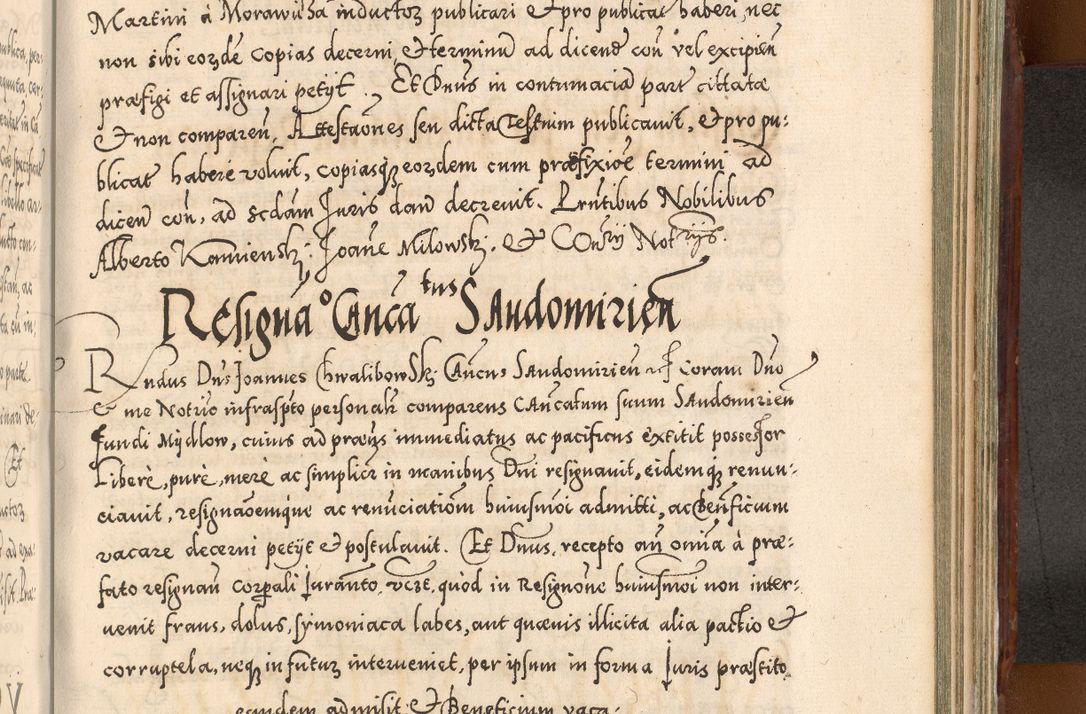 Martini à Morawitza inductoꝝ publicari & pro publicat haberi, nec
non sibi eoꝝde copias decerni, & terminū ad dicend con̄ vel excipien̄
præfigi et assignari petÿt. Et Dnūs in contumaciā part cittatæ
& non comparen̄, Attestaōnes seu dicta Testium publicauit, & pro pu-
blicat habere voluit, copiasq̨ eoꝝdem cum præfixiōe termini ad
dicen̄ con̄, ad scdām Juris dan̄ decreuit. Prn̄tibus Nobilibus
Alberto Kamiensk: Joan̄e Milowskj. & Con̄rÿ Notrÿs.
Resignaō Cancātus Sandomirien̄
Rndus Dn̄s Joannes Chwalibowskj Can̄cus Sandomirien̄ et coram Dn̄o
& me Notrio infraspto personalr comparens Can̄catum suum Sandomirien̄
fundi Mÿdlow, cuius ad præns immediatus ac pacificus extitit possessor
Liberè, purè, merè ac simplicr in manibus Dn̄i resignauit, eidemq̨ renun-
ciauit, resignaōemque ac renūciatiōm huiusmōi admitti, ac Benficium
vacare decerni petÿt & postulauit. Et Dnūs, recepto an̄ omīa à præ-
fato resignan̄ corpali Juran̄to, quòd in Resignōne huiusmōi non inter-
uenit fraus, dolus, symoniaca labes, aut quæuis illicita alia pactio &
corruptela, neq̨ in futuꝝ interueniet, per ipsum in forma Juris præstito
eandem admisit & Beneficium vaca-